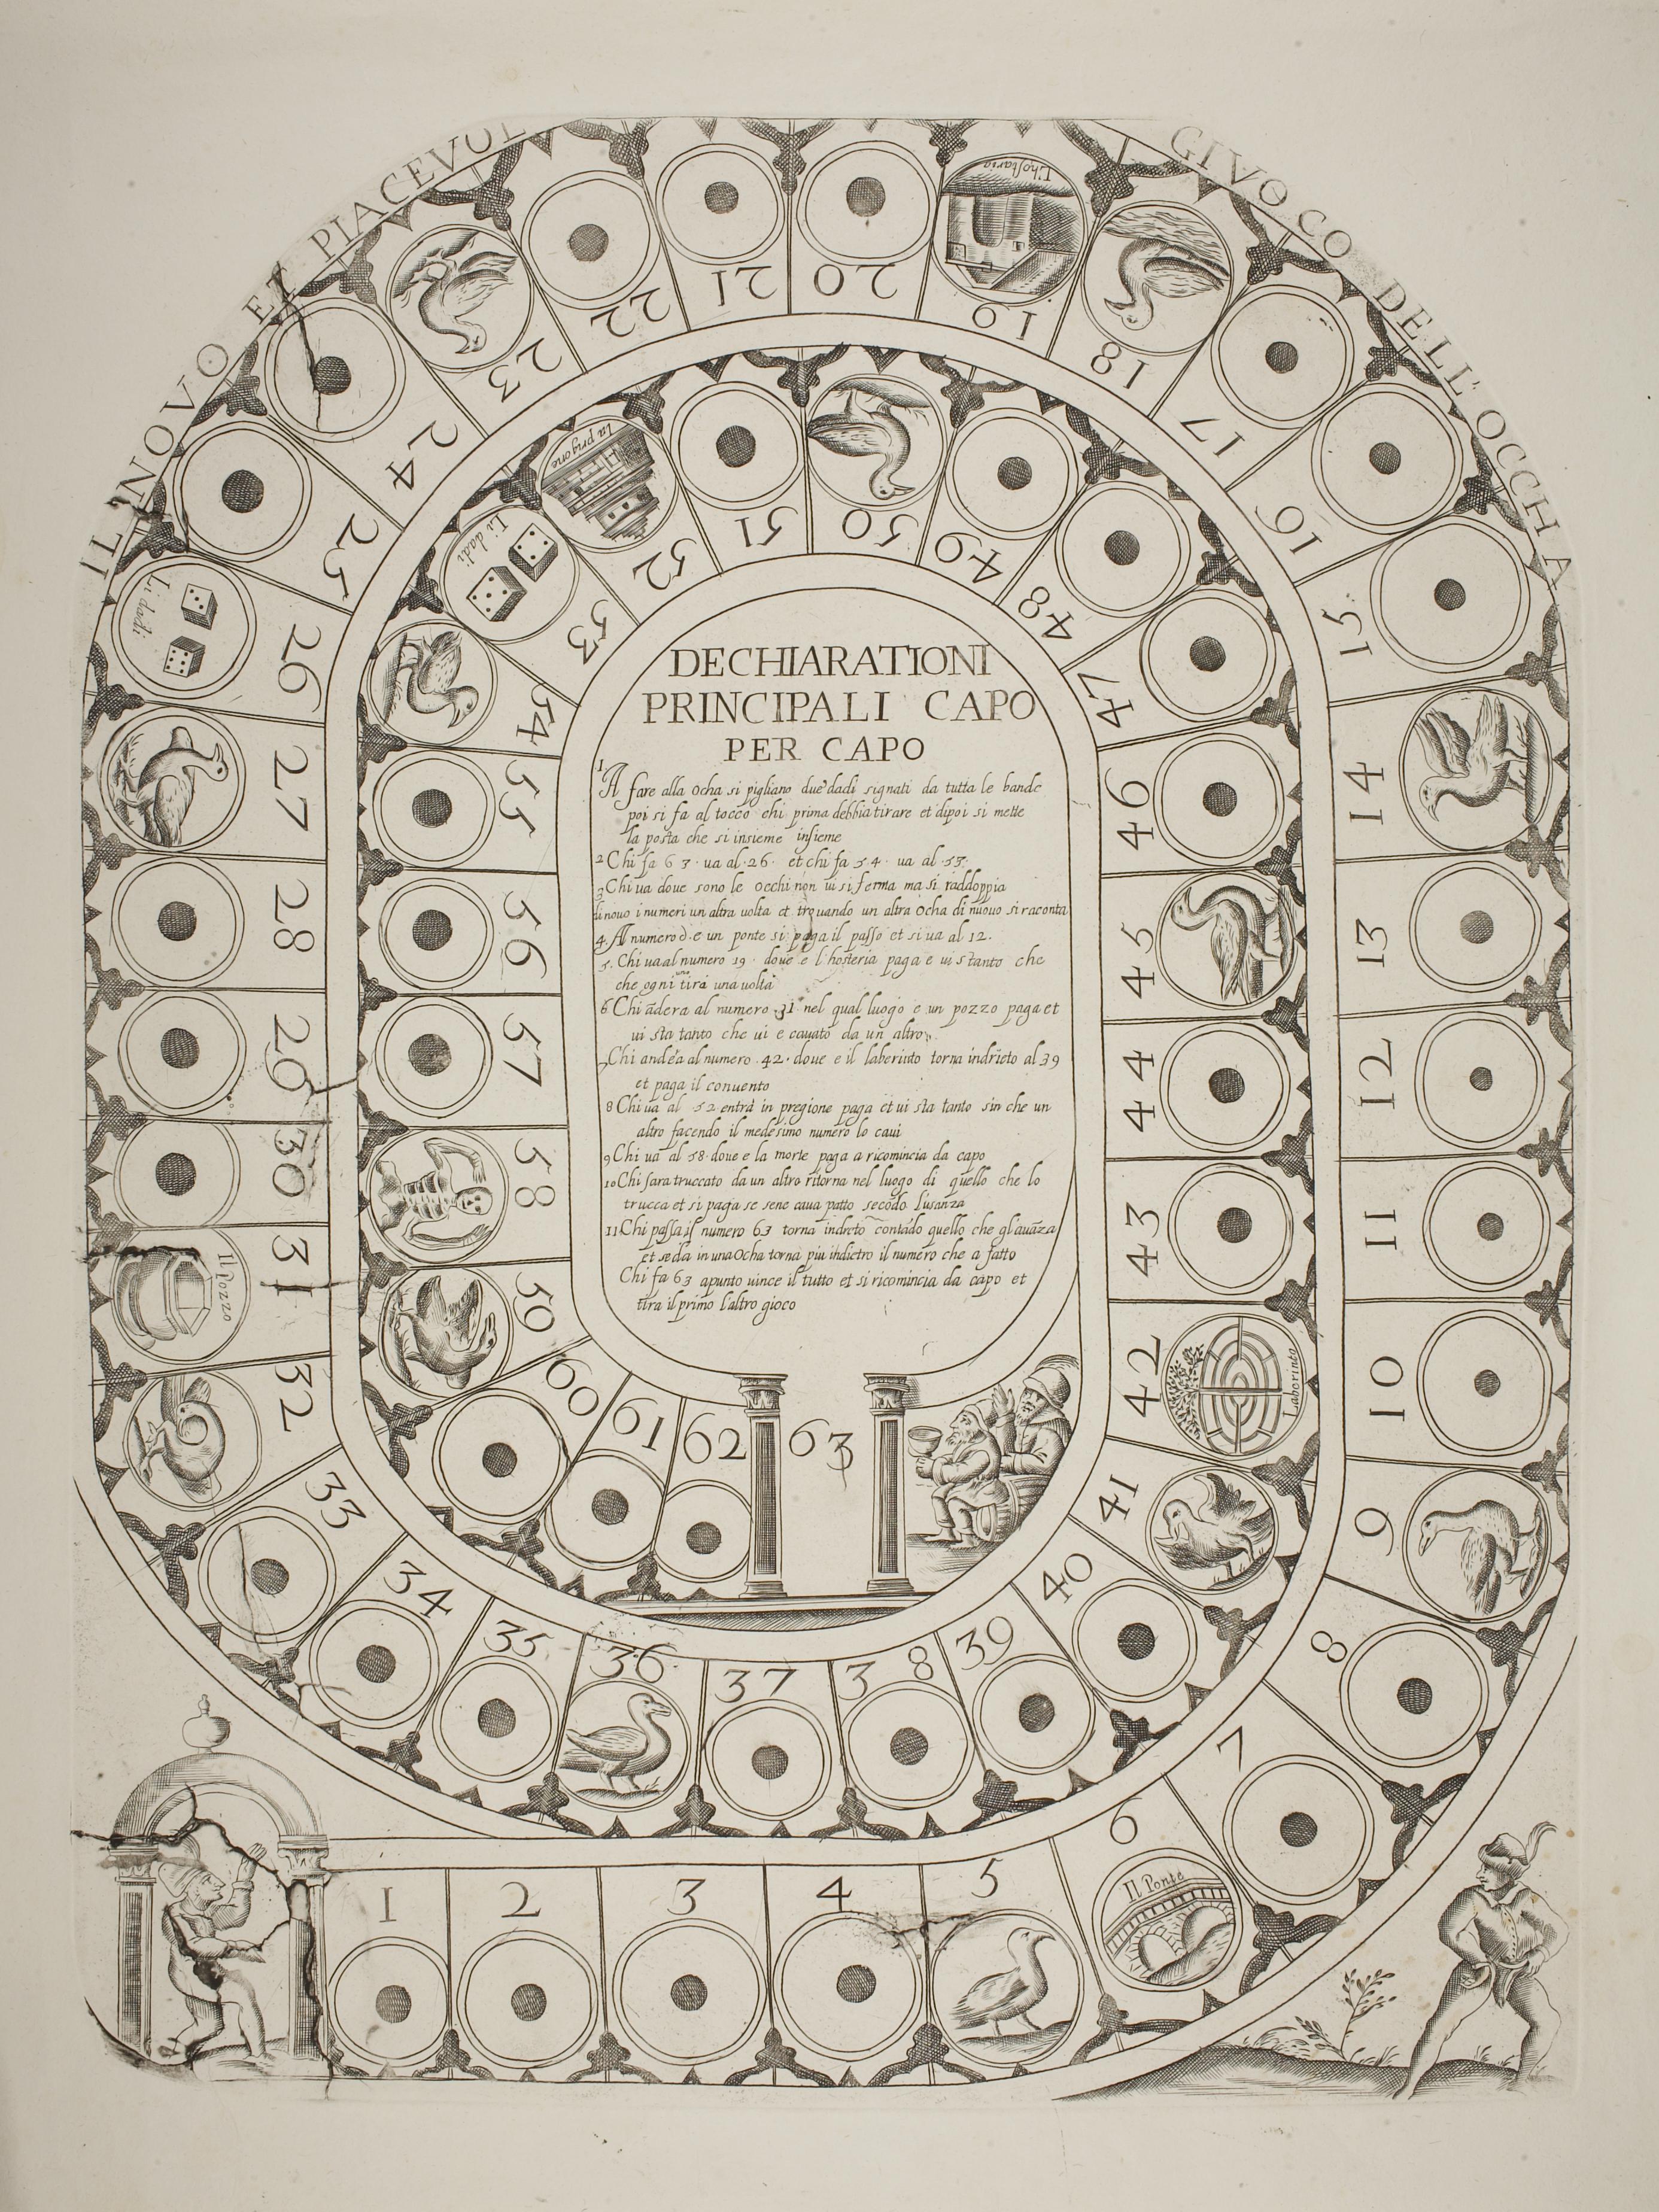 IL NOVO ET PIACEVOL GIVOCO DELL' OCCHA
DECHIARATIONI
PRINCIPALI CAPO
PER CAPO
1 A fare alla Ocha si pigliano due dadi signati da tutta le bande
poi si fa al tocco chi prima debbia tirare et dipoi si mette
la posta che si insieme insieme
2 Chi fa 6 3 ua al 26 et chi fa 5 4 ua al 53.
3 Chi ua doue sono le occhi non ui si ferma ma si raddoppia
di nouo i numeri un altra uolta et trouando un altra Ocha di nuouo si raconta
4 Al numero d.e un ponte si paga il passo et si ua al 12.
5. Chi ua al numero 19 doue e l'hosteria paga e ui s tanto che
che ogni uno tira una uolta
6 Chi ādera al numero 31 nel qual luogo e un pozzo paga et
ui sta tanto che ui e cauato da un altro.
7 Chi andea al numero 42 doue e il laberinto torna indrieto al 39
et paga il conuento
8 Chi ua al 52 entra in pregione paga et ui sta tanto sin che un
altro facendo il medesimo numero lo caui
9 Chi ua al 58 doue e la morte paga a ricomincia da capo
10 Chi sara truccato da un altro ritorna nel luogo di quello che lo
trucca et si paga se sene caua patto secōdo l'usanza
11 Chi passa il numero 63 torna indreto contādo quello che gl'auāza
et se da in una Ocha torna piu indietro il numero che a fatto
Chi fa 63 apunto uince il tutto et si ricomincia da capo et
tira il primo l'altro gioco
1
2
3
4
5
6
Il Ponte
7
8
9
10
11
12
13
14
15.
16
17
18
19
L'hostaria
20
21
22
23
24
25
26
Li dadi
27
28
29
30
31
Il Pozzo
32
33
34
35
36
37
38
39
40
41
42
Laborinto
43
44
45
46
47
48
49
50
51
52
La prigone
53
Li dadi
54
55
56
57
58
59
60
61
62
63